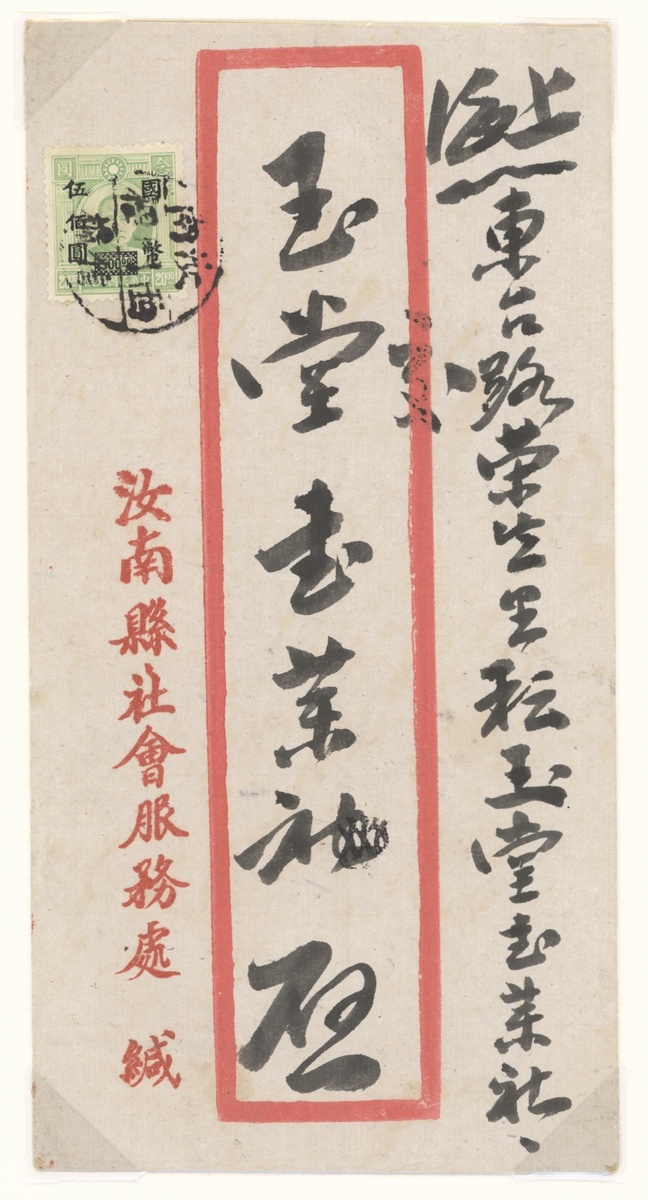 上海
東台路榮生里玉堂書業社
玉堂書業社 啟
國幣
伍佰圓
20 00
汝南縣社會服務處 緘